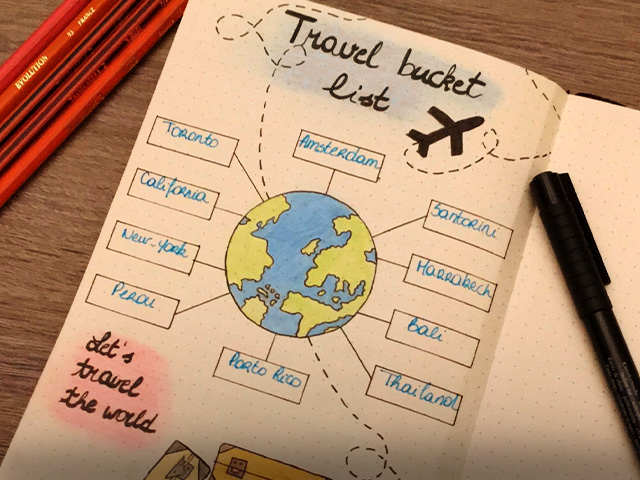 EVOLUTION 93 FRANCE
Travel bucket
list
Toronto
Amsterdam
California
Santorini
New-York
Marrakech
Perou
Bali
Porto Rico
Thailand
Let's
travel
the world